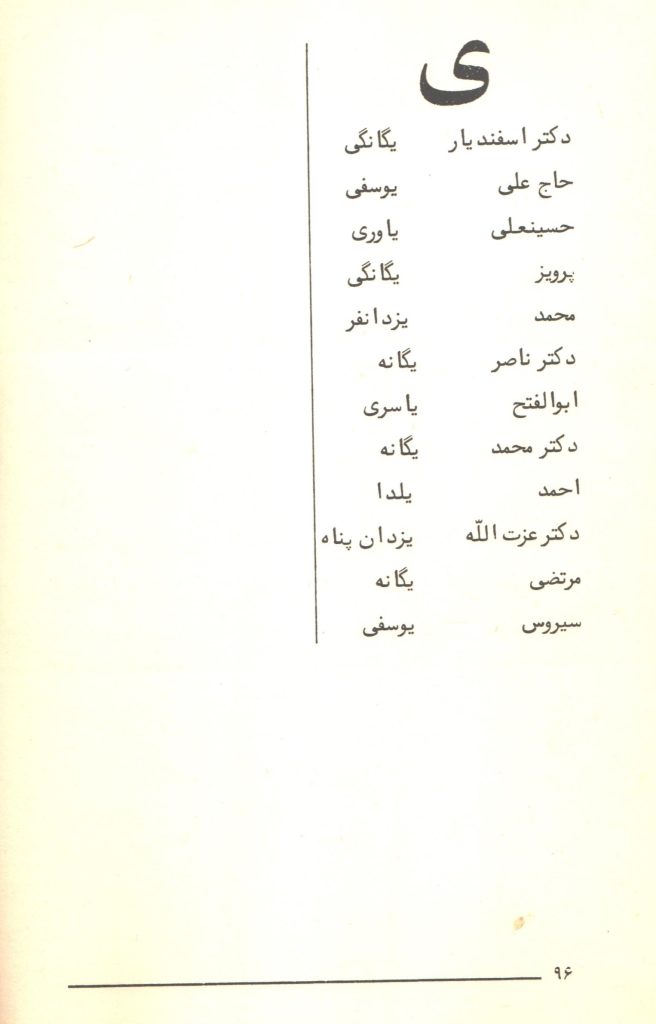 ی
دکتر اسفندیار یگانگی
حاج علی یوسفی
حسینعلی یاوری
پرویز یگانگی
محمد یزدانفر
دکتر ناصر یگانه
ابوالفتح یاسری
دکتر محمد یگانه
احمد یلدا
دکتر عزت اللّه یزدان پناه
مرتضی یگانه
سیروس یوسفی
۹۶